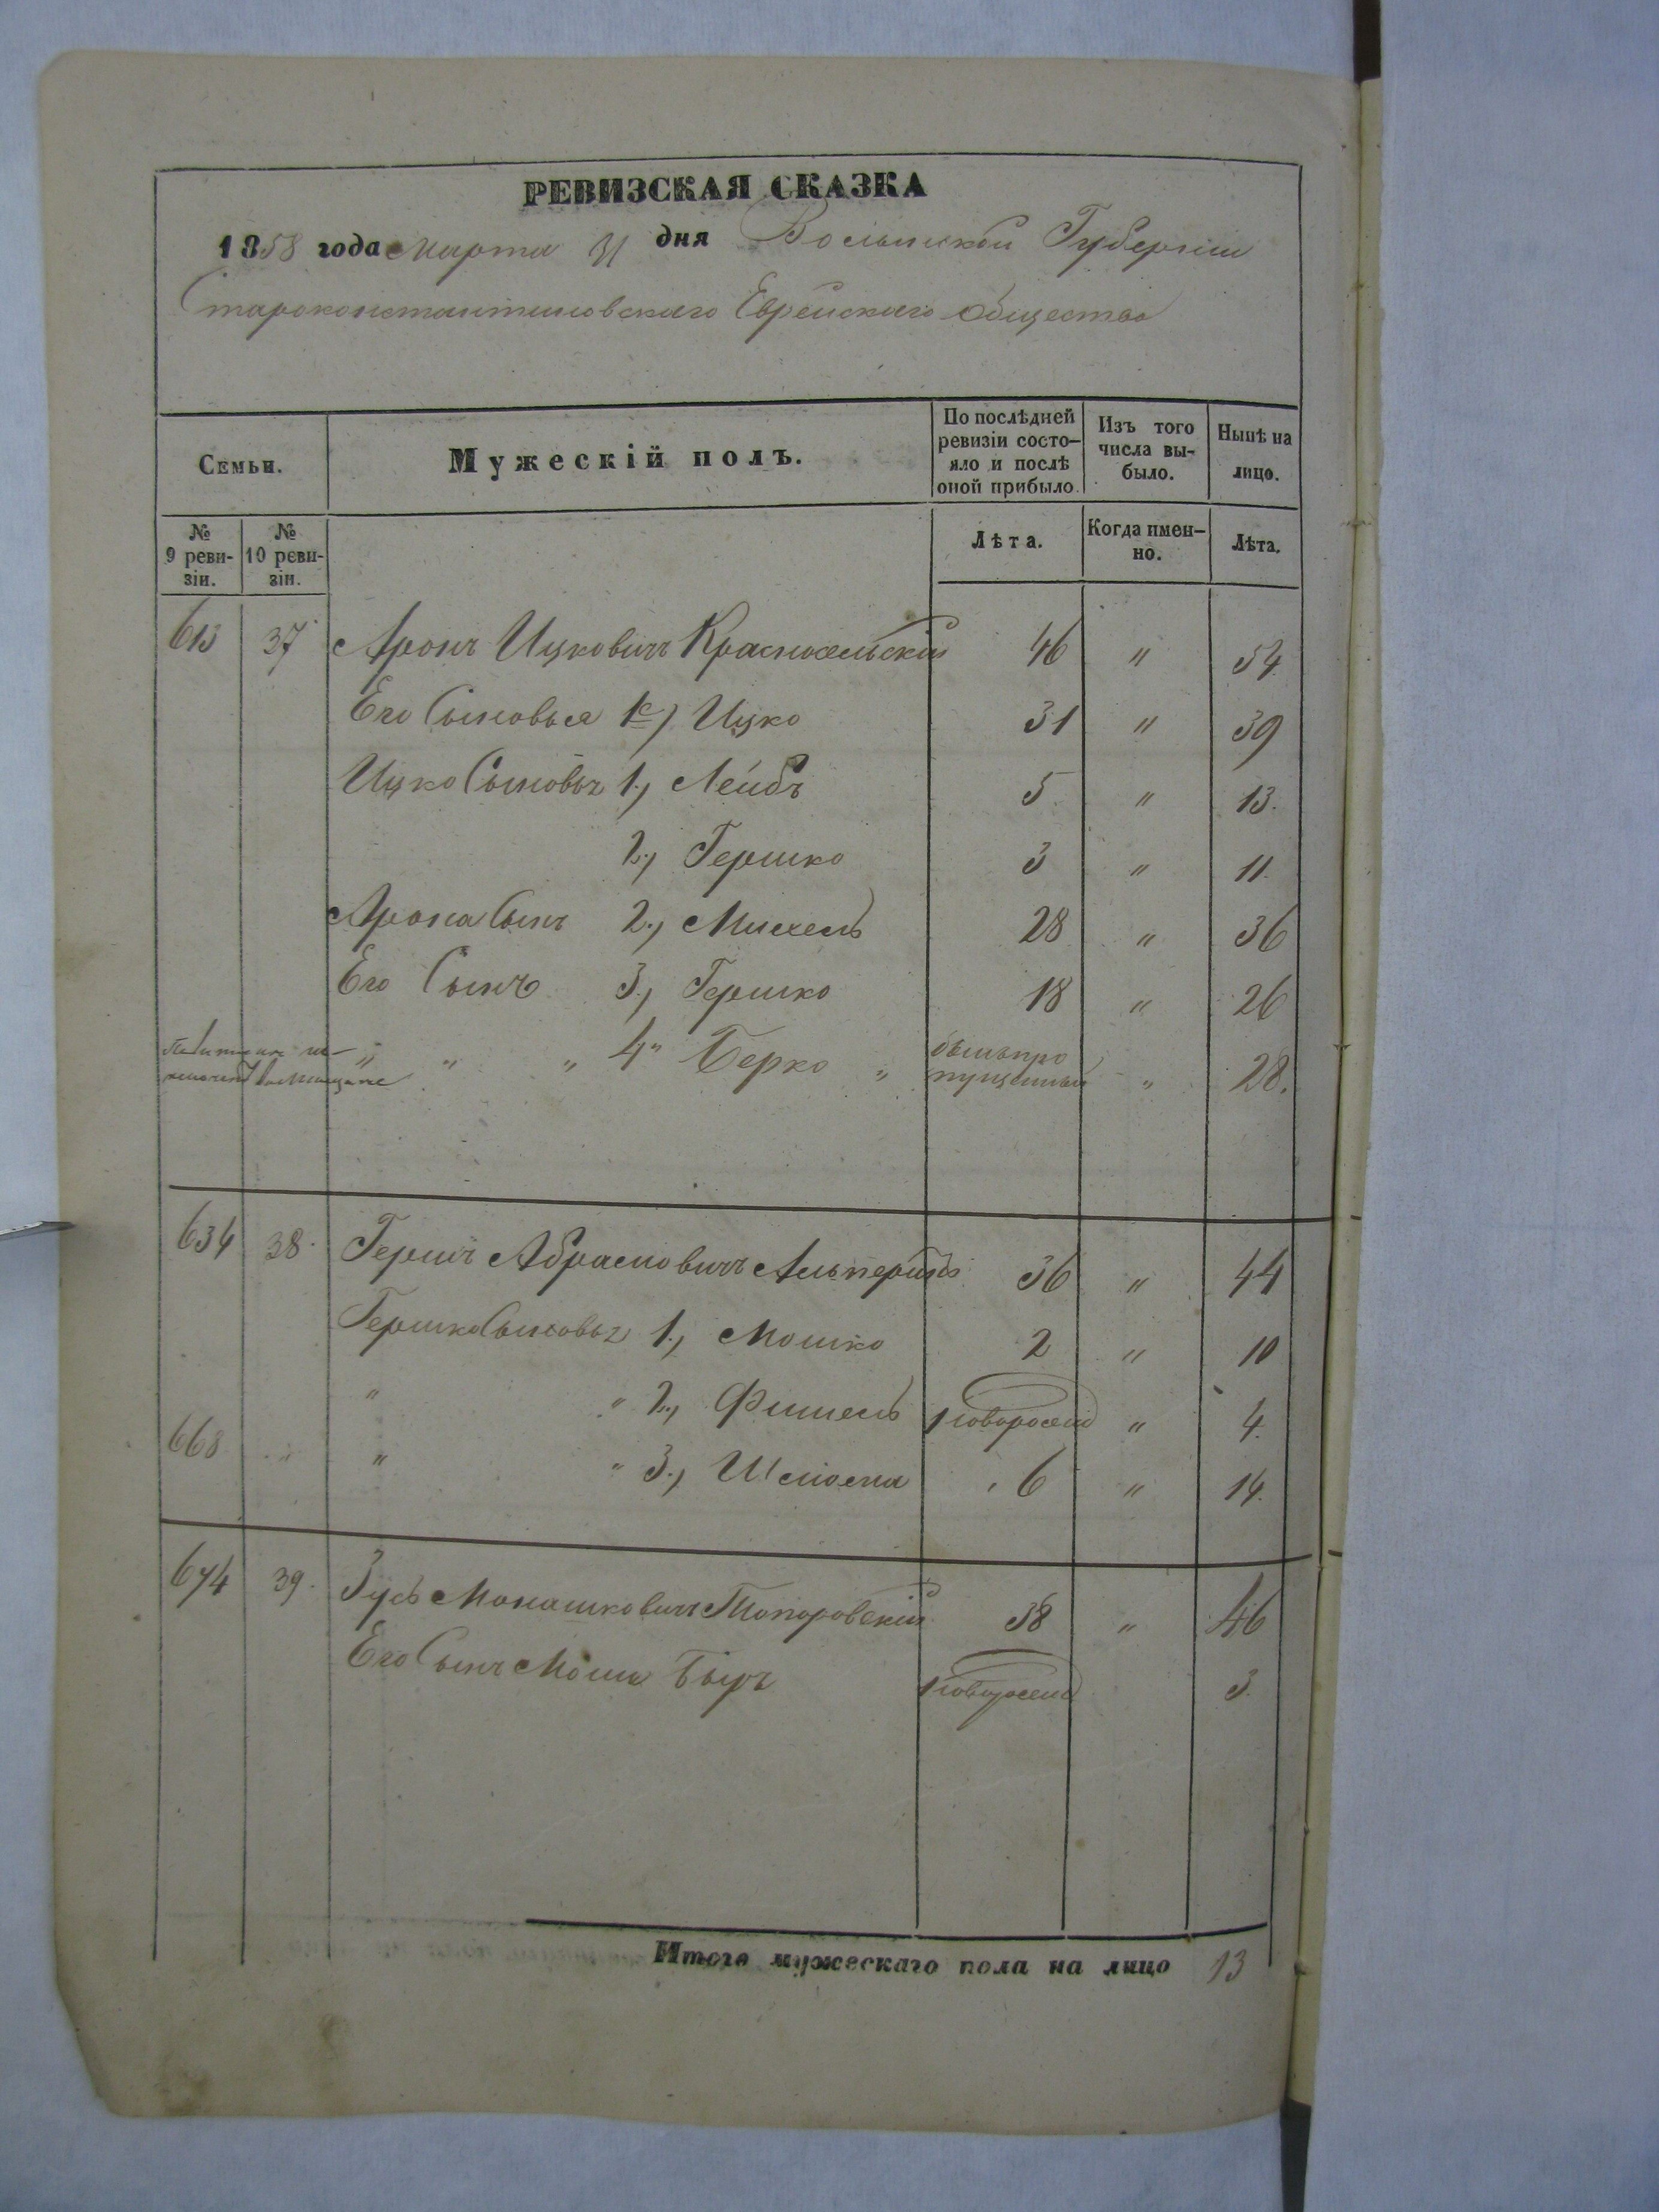 РЕВИЗСКАЯ СКАЗКА
1858 года Марта 31 дня Волынской Губерніи
Староконстантиновскаго Еврейскаго Общества
Семьи.
Мужескій полъ.
По послѣдней ревизіи состояло и послѣ оной прибыло.
Изъ того числа выбыло.
Нынѣ на лицо.
№ 9 ревизіи.
№ 10 ревизіи.
Лѣта.
Когда именно.
Лѣта.
613 37 Аронъ Ицковичъ Красносельскій 46 " 54
Его Сыновья 1й) Ицко 31 " 39
Ицко Сыновья 1., Лейбъ 5 " 13.
2., Гершко 3 " 11.
Арона Сынъ 2., Михель 28 " 36
Его Сынъ 3., Гершко 18 " 26
" " " 4" Берко " былъ пропущенный " 28.
634 38. Гершъ Абрамовичъ Альперинъ 36 " 44
Гершко Сыновья 1., Мошко 2 " 10
" " 2., Фишель новорожд " 4.
668 " " " 3., Шлиома 6 " 14.
674 39. Зусь Монашковичъ Топоровскій 38 " 46
Его Сынъ Мошко Беръ новорожд 3.
Итого мужескаго пола на лицо 13